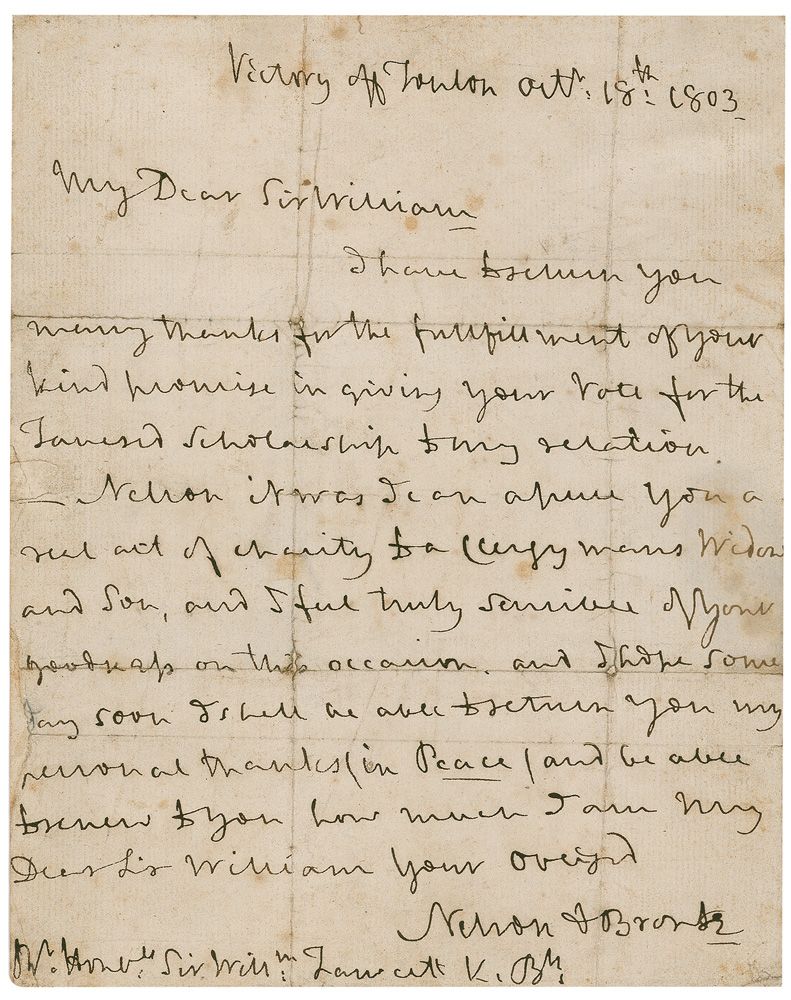 Victory off Toulon Octr: 18th: 1803
My Dear Sir William
I have to return you
many thanks for the fullfillment of your
kind promise in giving your vote for the
Scholarship to my relation
— Nelson it was I can assure you a
real act of charity to a Clergymans Widow
and Son, and I feel truly sensible of your
goodness on this occasion. and I hope some
day soon I shall be able to return you my
personal thanks (in Peace) and be able
to you how much I am My
Dear Sir William Your Oblig'd
Nelson & Bronte
Rt. Honble: Sir Willm: Fawcett K. Bh: